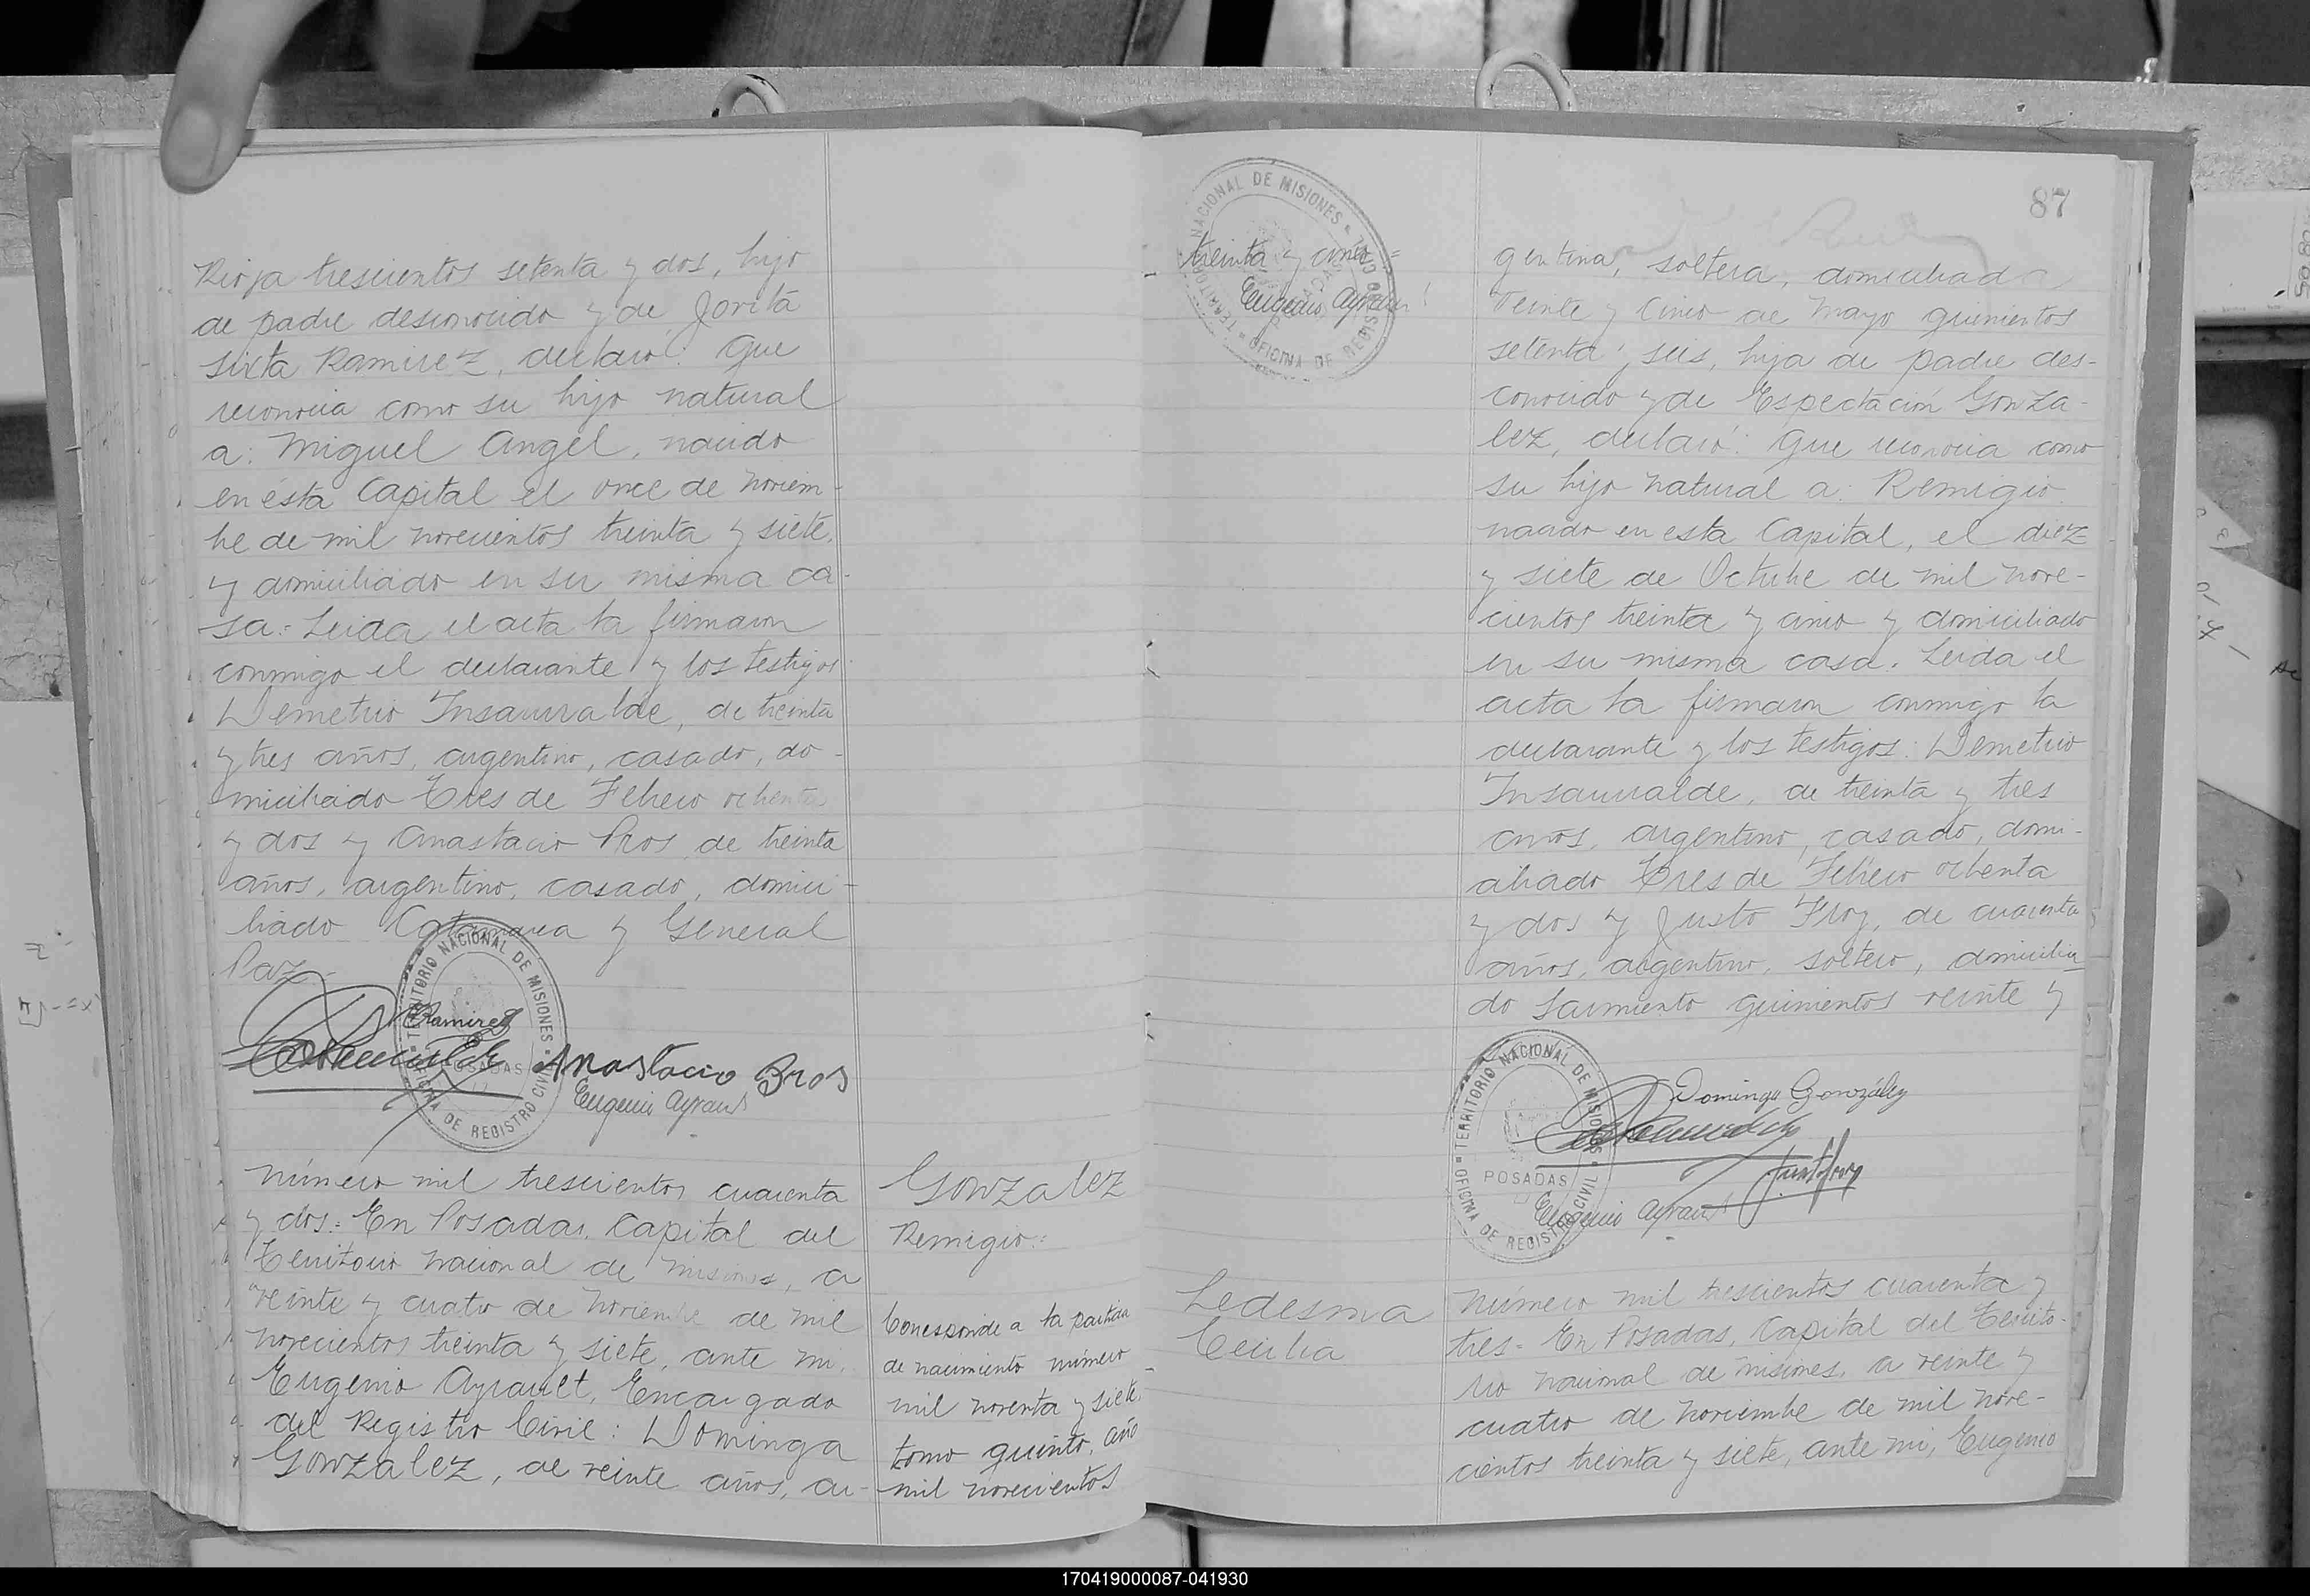 Rioja trescientos setenta y dos, hijo
de padre desconocido y de Jovita
Sixta Ramirez, declaró: Que
reconocia como su hijo natural
a: Miguel Angel, nacido
en ésta Capital el once de noviem-
bre de mil novecientos treinta y siete,
y domiciliado en su misma ca-
sa.- Leida el acta la firmaron
conmigo el declarante y los testigos
Demetrio Insaurralde, de treinta
y tres años, argentino, casado, do-
miciliado Tres de Febrero ochenta
y dos y Anastacio Bros de treinta
años, argentino, casado, domici-
liado Catamarca y General
Paz.-
Ramirez
Anastacio Bros
Eugenio Ayrault
TERRITORIO NACIONAL DE MISIONES
POSADAS
OFICINA DE REGISTRO CIVIL
Número mil trescientos cuarenta
y dos.= En Posadas, Capital del
Territorio Nacional de Misiones, a
veinte y cuatro de Noviembre de mil
novecientos treinta y siete, ante mi,
Eugenio Ayrault, Encargado
del Registro Civil: Dominga
Gonzalez, de veinte años, ar-
Gonzalez
Remigio.=
Corresponde a la partida
de nacimiento número
mil noventa y siete,
tomo quinto, año
mil novecientos
treinta y cinco=
Eugenio Ayrault
TERRITORIO NACIONAL DE MISIONES
POSADAS
OFICINA DE REGISTRO CIVIL
87
gentina, soltera, domiciliada
Veinte y Cinco de Mayo quinientos
setenta y seis, hija de padre des-
conocido y de Espectación Gonza-
lez, declaró: Que reconocia como
su hijo natural a: Remigio
nacido en esta Capital, el diez
y siete de Octubre de mil nove-
cientos treinta y cinco y domiciliado
en su misma casa. Leida el
acta la firmaron conmigo la
declarante y los testigos: Demetrio
Insaurralde, de treinta y tres
años, argentino, casado, domi-
ciliado Tres de Febrero ochenta
y dos y Justo Froy, de cuarenta
años, argentino, soltero, domicilia-
do Sarmiento quinientos veinte y
Dominga González
Justo Froy
Eugenio Ayrault
TERRITORIO NACIONAL DE MISIONES
POSADAS
OFICINA DE REGISTRO CIVIL
Ledesma
Cecilia
Número mil trescientos cuarenta y
tres.- En Posadas, Capital del Territo-
rio Nacional de Misiones, a veinte y
cuatro de Noviembre de mil nove-
cientos treinta y siete, ante mi, Eugenio
170419000087-041930